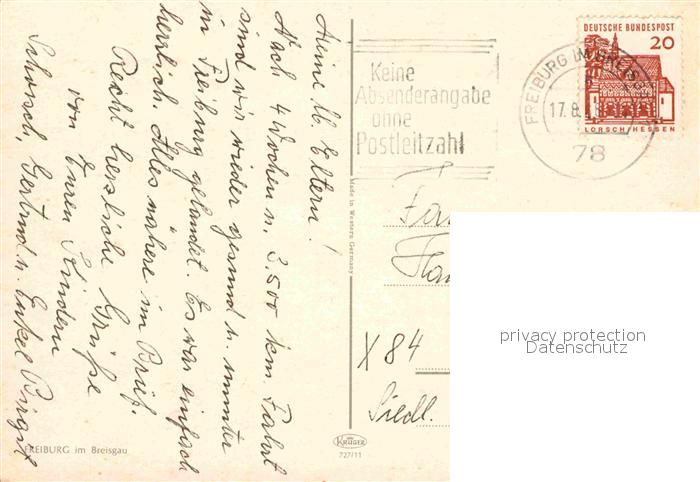 Meine lb. Eltern!
Nach 4 Wochen u. 3.500 km. Fahrt
sind wir wieder gesund u. munter
in Freiburg gelandet. Es war einfach
herrlich. Alles nähere im Brief.
Recht herzliche Grüße
von Euren Kindern
Schorsch, Gertrud u. Enkel Birgit
FREIBURG im Breisgau
Keine
Absenderangabe
ohne
Postleitzahl
FREIBURG IM BREISG
17.8.
78
DEUTSCHE BUNDESPOST
20
LORSCH/HESSEN
Made in Western Germany
Fa
X 84
Siedl.
KRÜGER
727/11
privacy protection
Datenschutz